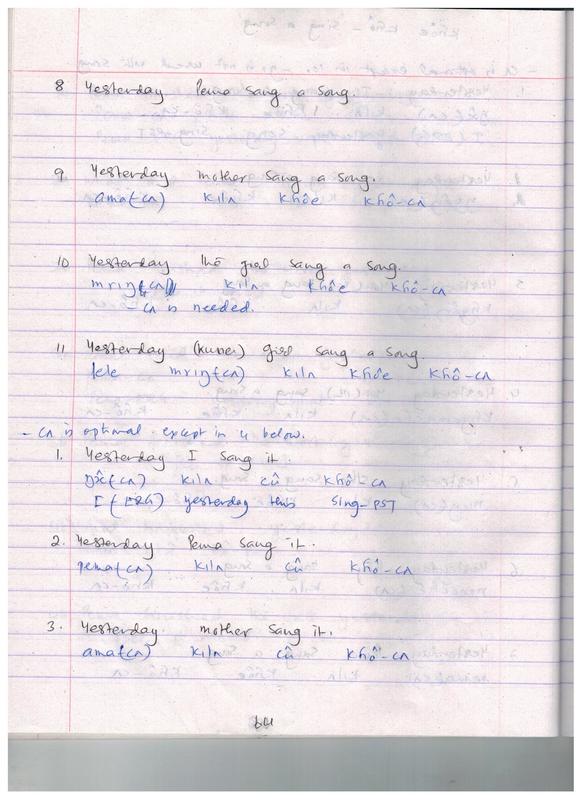 8 Yesterday Pema sang a song.
9 Yesterday mother sang a song.
ama(-cʌ) kilʌ khôe khô-cʌ
10 Yesterday the girl sang a song.
mriŋ(-cʌ) kilʌ khôe khô-cʌ
-cʌ is needed.
11 Yesterday (kuner) girl sang a song.
lele mriŋ(-cʌ) kilʌ khôe khô-cʌ
-cʌ is optional except in 4 below.
1. Yesterday I sang it.
(-cʌ) kilʌ cû khô-cʌ
I (ERG) yesterday this sing-PST
2. Yesterday Pema sang it.
pema(-cʌ) kilʌ cû khô-cʌ
3. Yesterday mother sang it.
ama(-cʌ) kilʌ cû khô-cʌ